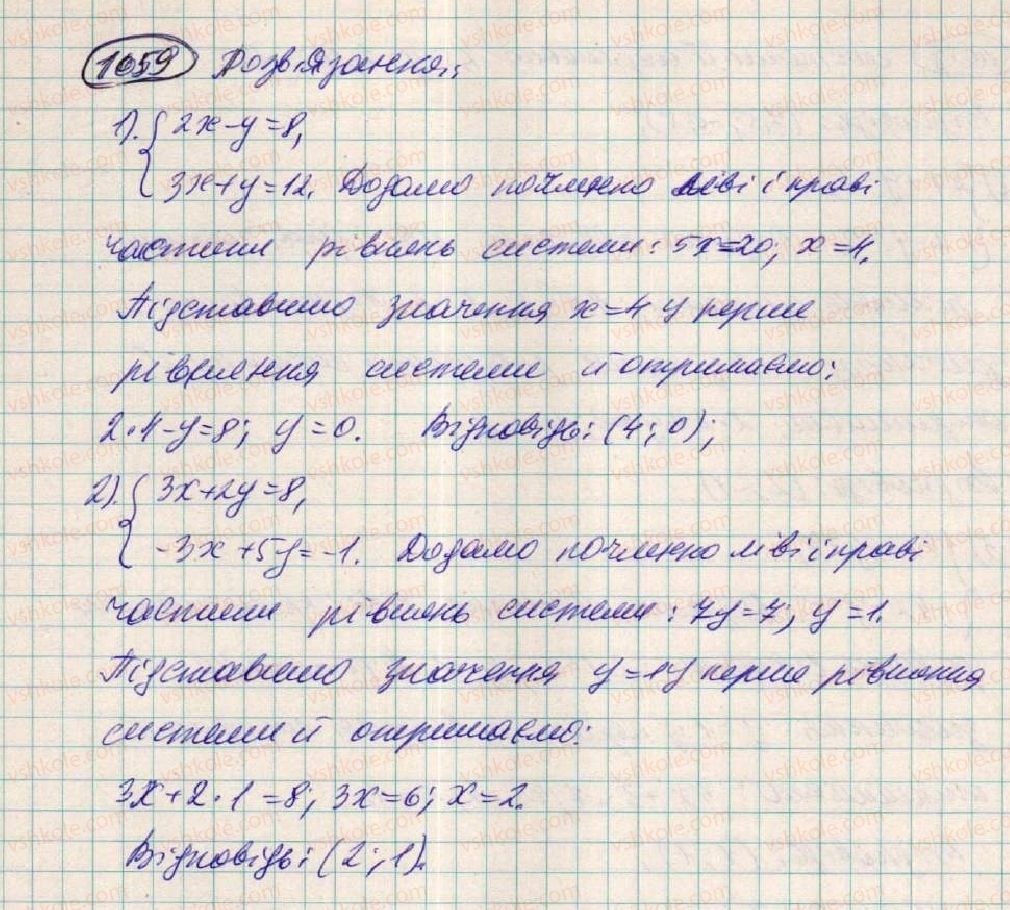 1059 Розв'язання:
1). { 2x-y=8,
3x+y=12. Додамо почленно ліві і праві
частини рівнянь системи: 5x=20; x=4.
Підставимо значення x=4 у перше
рівняння системи й отримаємо:
2·4-y=8; y=0. Відповідь: (4; 0);
2). { 3x+2y=8,
-3x+5y=-1. Додамо почленно ліві і праві
частини рівнянь системи: 7y=7; y=1.
Підставимо значення y=1 у перше рівняння
системи й отримаємо:
3x+2·1=8; 3x=6; x=2.
Відповідь: (2; 1).